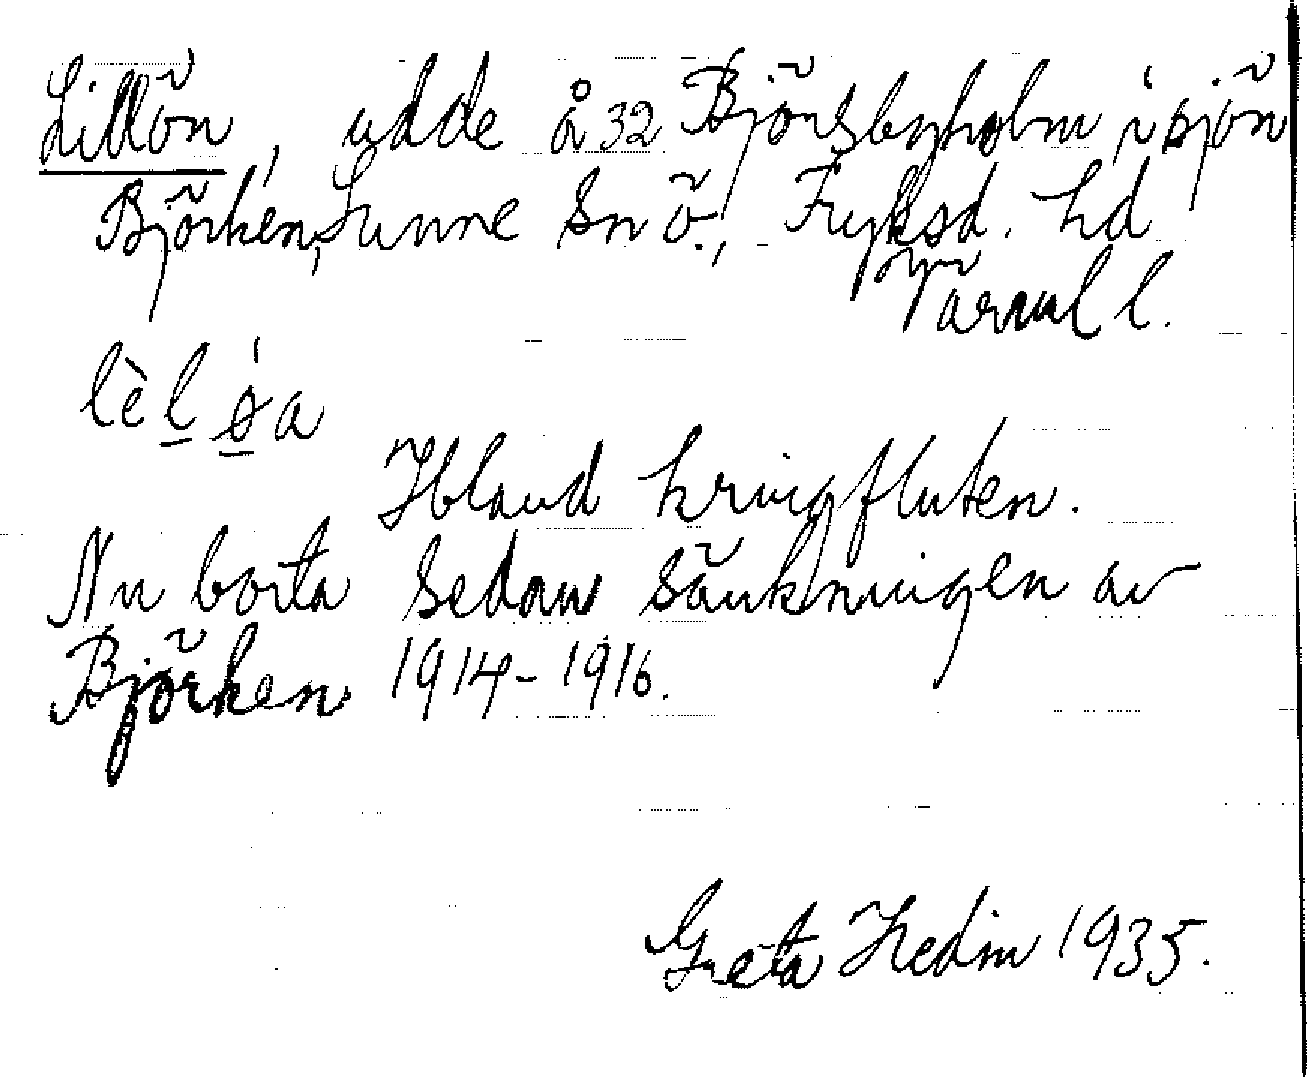 Lillön, udde å 32 Björsbyholm i sjön
Björken, Sunne sn ö., Fryksd. hd
Värml l.
lèl ǿa
Ibland kringfluten.
Nu borta sedan sänkningen av
Björken 1914-1916.
Greta Hedin 1935.